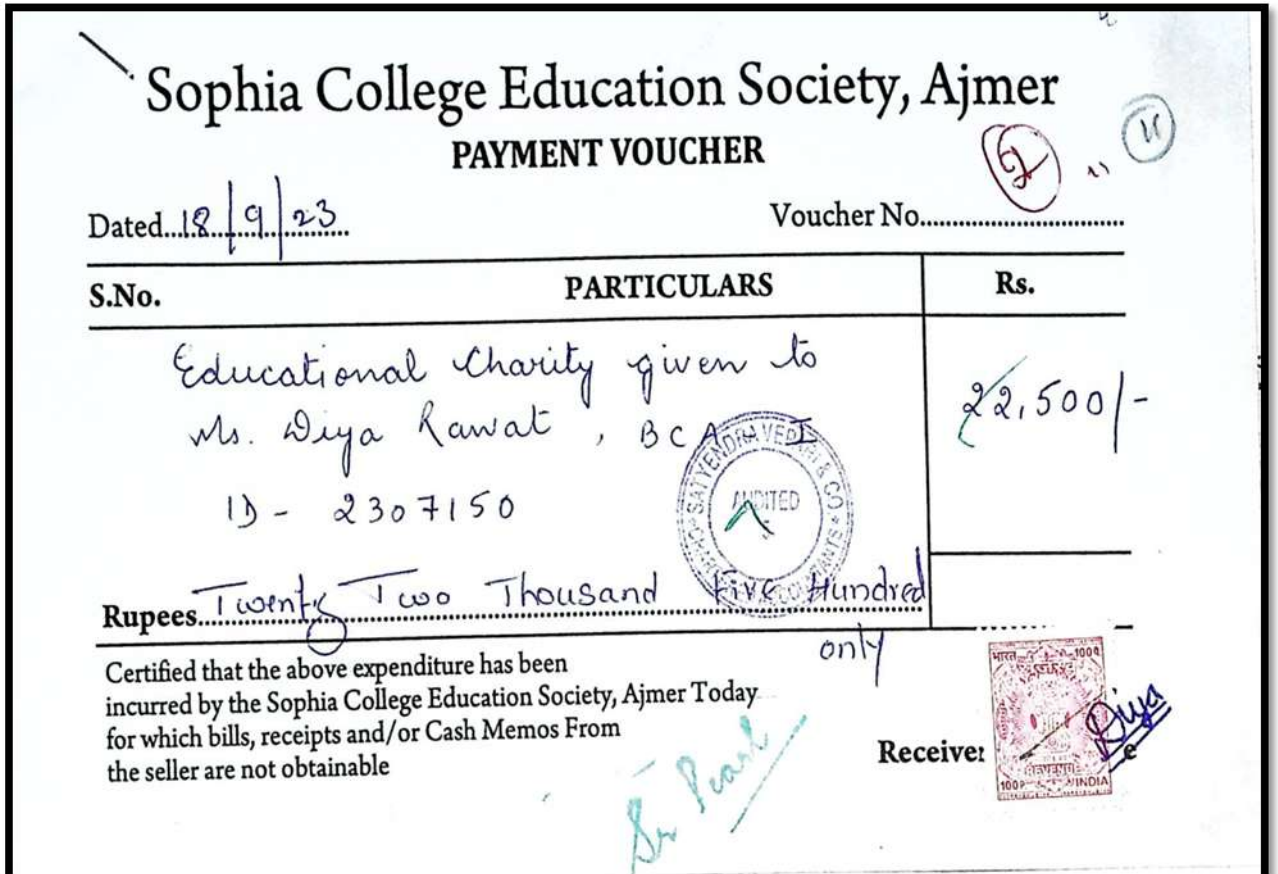 Sophia College Education Society, Ajmer
PAYMENT VOUCHER
Dated...18/9/23...
Voucher No..............................
S.No. PARTICULARS Rs.
Educational Charity given to
Ms. Diya Rawat , BCA I
22,500/-
ID - 2307150
SATYENDRA & CO
AUDITED
Rupees... Twenty Two Thousand Five Hundred
only
Certified that the above expenditure has been
incurred by the Sophia College Education Society, Ajmer Today
for which bills, receipts and/or Cash Memos From
the seller are not obtainable
भारत 100
REVENUE
100 INDIA
Diya